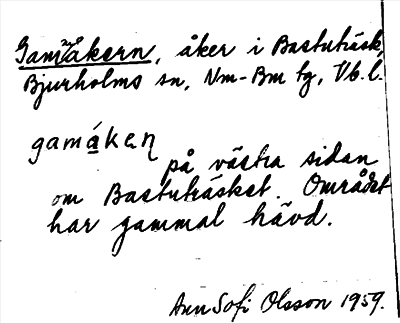 Gammåkern, åker i Bastuträsk,
Bjurholms sn, Nm-Bm tg, Vb. l.
gamákeɳ
på västra sidan
om Bastuträsket. Området
har gammal hävd.
Ann Sofi Olsson 1959.